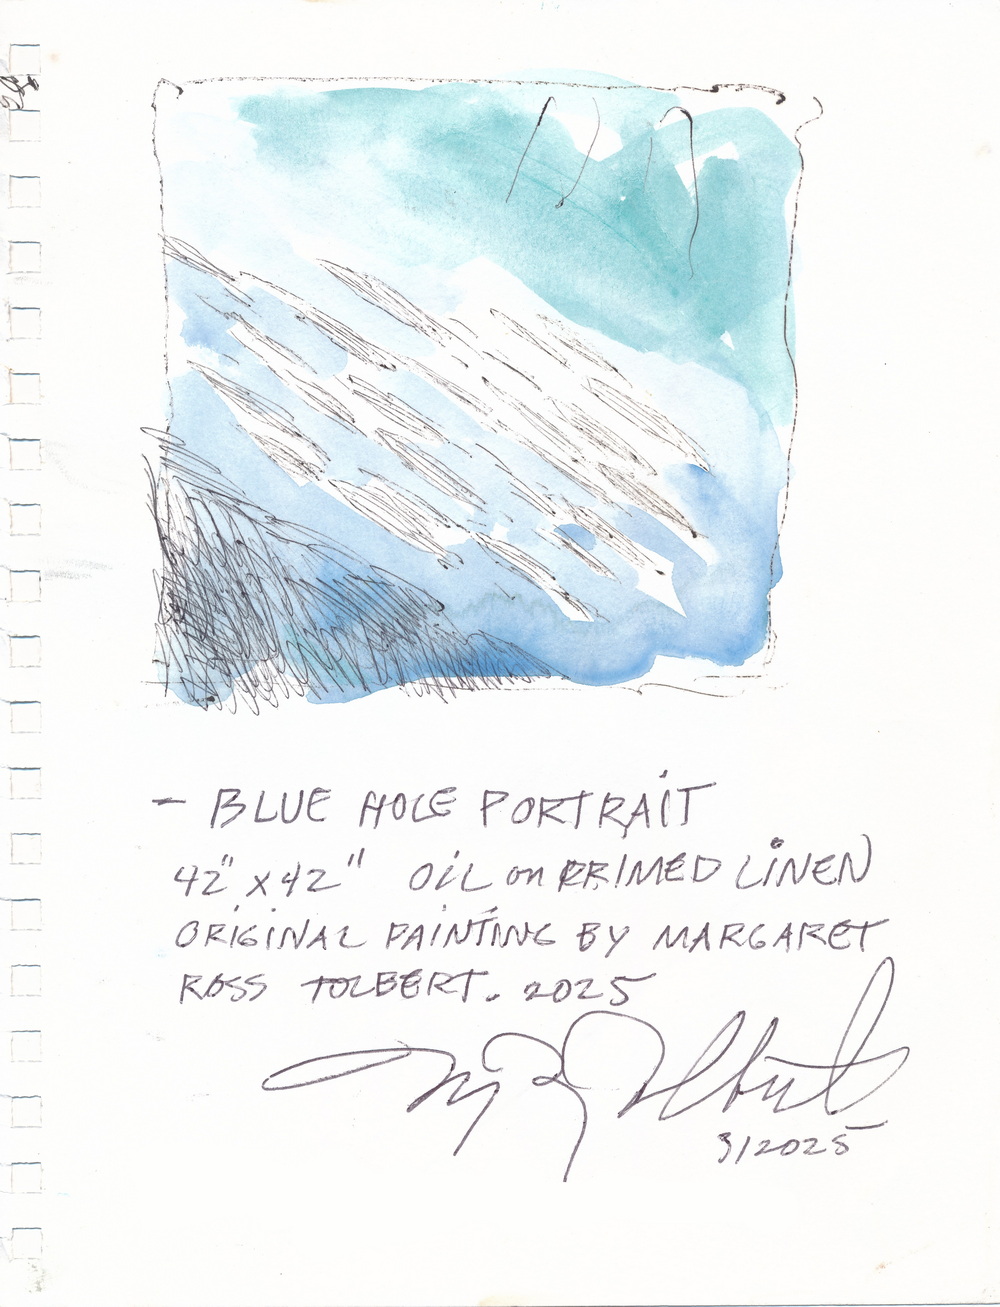 - BLUE HOLE PORTRAIT
42" x 42" OIL on PRIMED LINEN
ORIGINAL PAINTING BY MARGARET
ROSS TOLBERT. 2025
MR Tolbert
3/2025